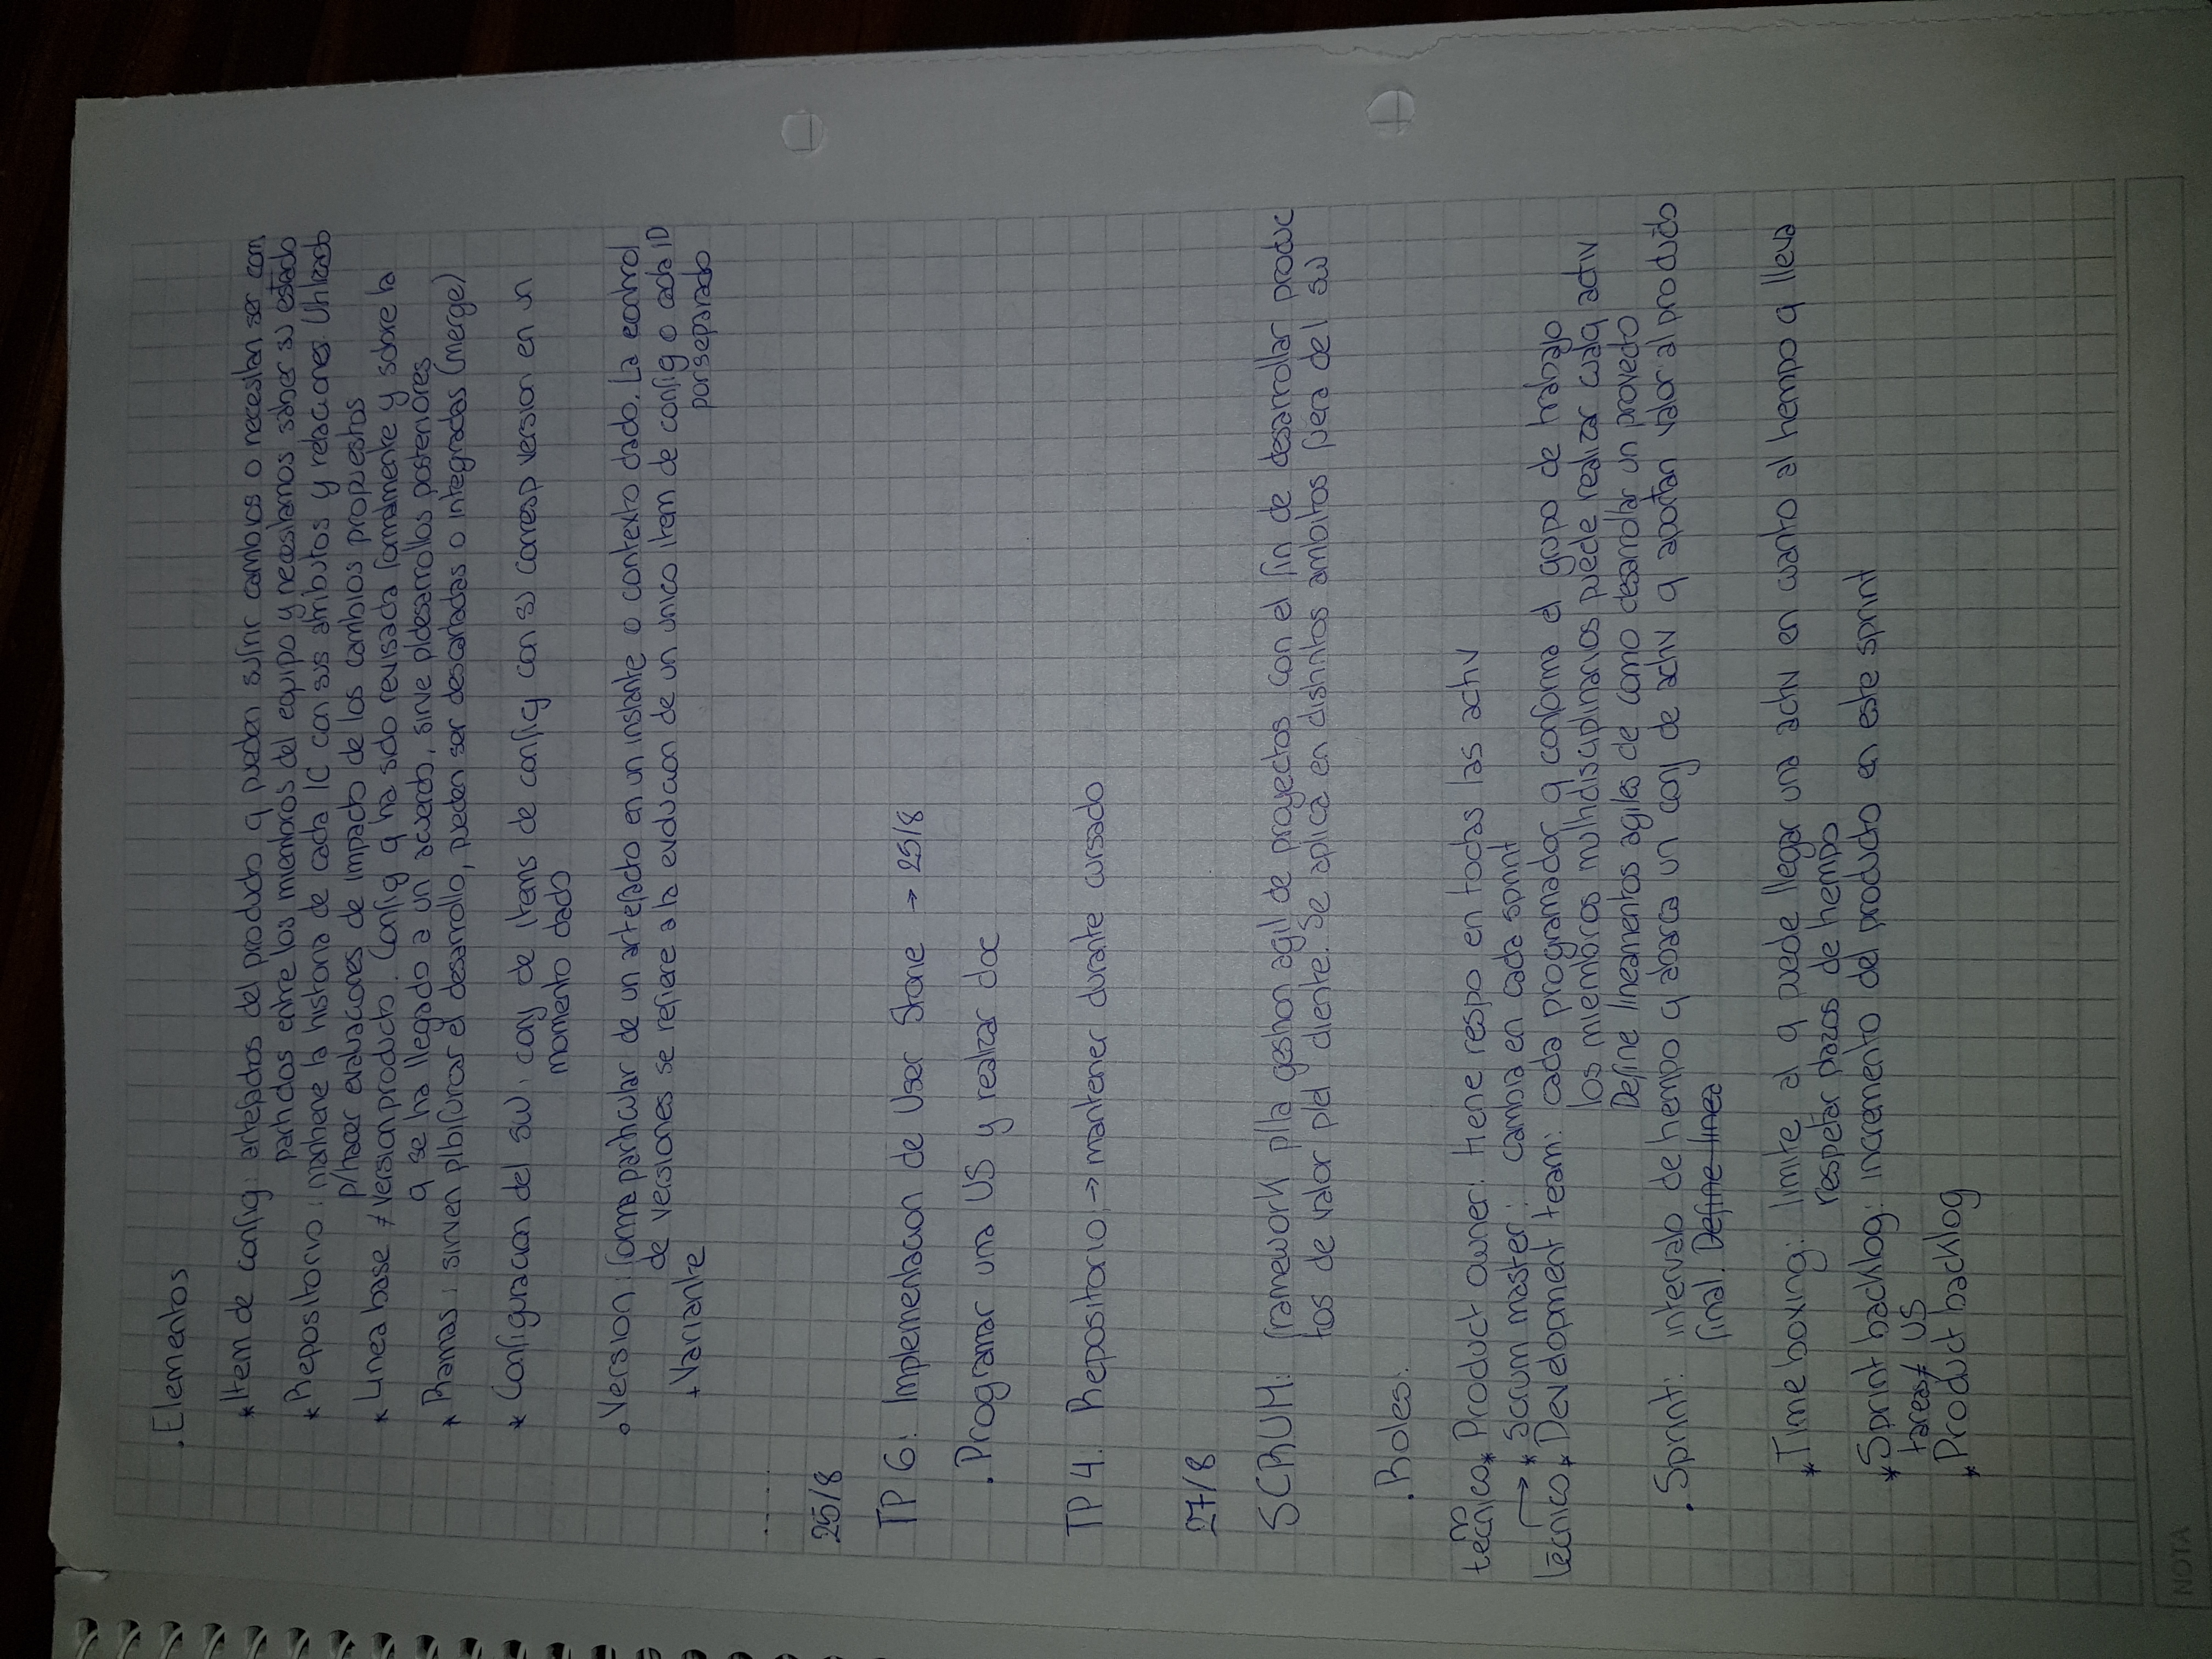 . Elementos
* Item de config: artefactos del producto q pueden sufrir cambios o necesitan ser com
partidos entre los miembros del equipo y necesitamos saber su estado
* Repositorio: mantiene la historia de cada IC con sus atributos y relaciones. Utilizado
p/hacer evaluaciones de impacto de los cambios propuestos
* Linea base ≠ version producto. Config q ha sido revisada formalmente y sobre la
q se ha llegado a un acuerdo, sirve p/desarrollos posteriores
* Ramas: sirven p/bifurcar el desarrollo, pueden ser descartadas o integradas (merge)
* Configuracion del SW: conj de items de config con su corresp version en un
momento dado
. Version: forma particular de un artefacto en un instante o contexto dado. La control
de versiones se refiere a la evolucion de un unico item de config o cada ID
por separado
+ Variante
25/8
TP 6: Implementacion de User Storie → 25/8
. Programar una US y realizar doc
TP 4. Repositorio → mantener durante cursado
27/8
SCRUM: framework p/la gestion agil de proyectos con el fin de desarrollar produc
tos de valor p/el cliente. Se aplica en distintos ambitos fuera del sw
. Roles:
no
técnico * Product owner: tiene respo en todas las activ
→ * Scrum master: cambia en cada sprint
técnico * Development team: cada programador q conforma el grupo de trabajo
los miembros multidisciplinarios puede realizar cualq activ
Define lineamentos agiles de como desarrollar un proyecto
. Sprint: intervalo de tiempo q abarca un conj de activ q aportan valor al producto
final. Define linea
* Time boxing: limite al q puede llegar una activ en cuanto al tiempo q lleva
respetar plazos de tiempo
* Sprint backlog: incremento del producto en este sprint
tareas ≠ US
* Product backlog
NOTA